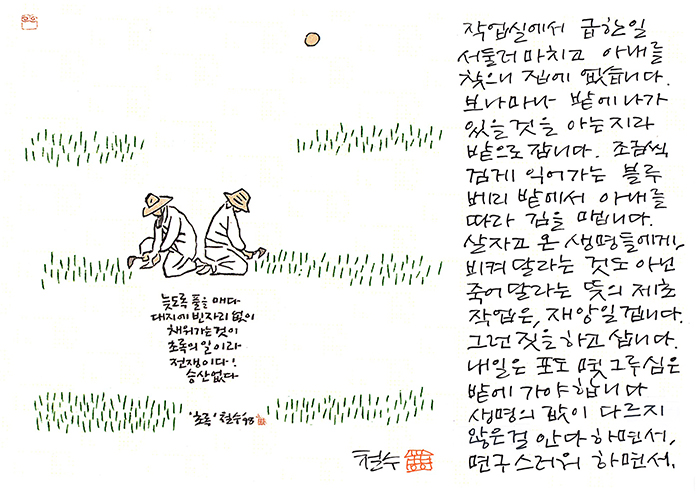 늦도록 풀을 매다
대지에 빈자리 없이
채워가는것이
초록의 일이라
전쟁이다!
승산없다
'초록' 철수 '98
작업실에서 급한일
서둘러 마치고 아내를
찾으니 집에 없습니다.
보나마나 밭에 나가
있을 것을 아는지라
밭으로 갑니다. 조금씩
검게 익어가는 블루
베리 밭에서 아내를
따라 김을 맵니다.
살자고 온 생명들에게,
비켜 달라는 것도 아닌
죽어 달라는 뜻의 제초
작업은, 재앙일겁니다.
그런 짓을 하고 삽니다.
내일은 포도 몇그루심은
밭에 가야 합니다
생명의 값이 다르지
않은걸 안다 하면서,
면구스러워 하면서.
철수